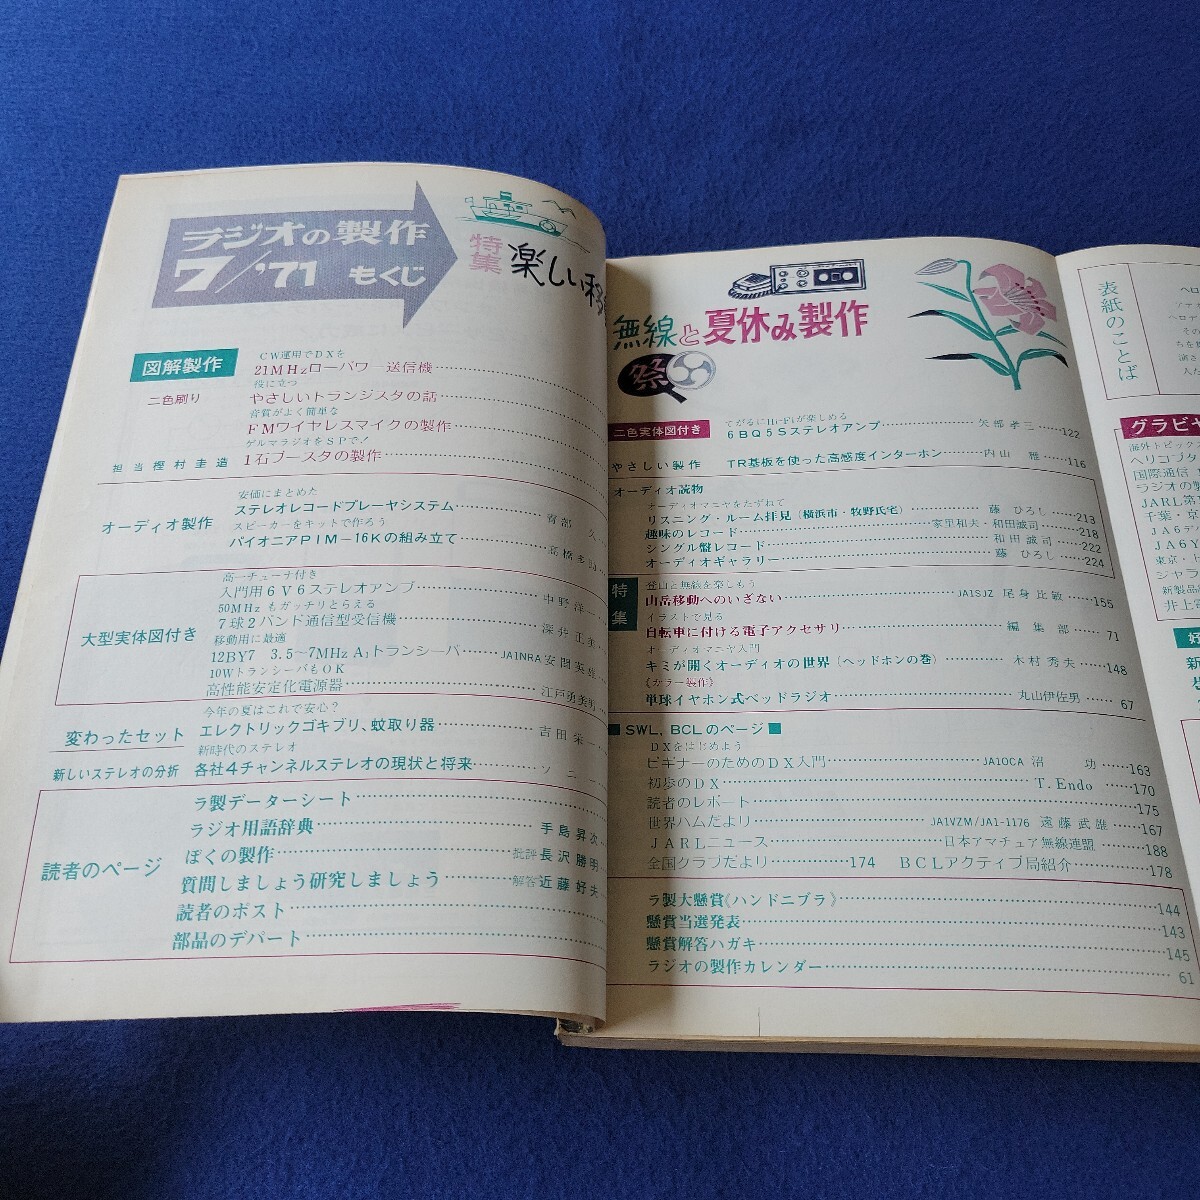 ラジオの製作
7/'71 もくじ
特集 楽しい移
図解製作
二色刷り
担当 樫村圭造
CW運用でDXを
21MHzローパワー送信機
役に立つ
やさしいトランジスタの話
音質がよく簡単な
FMワイヤレスマイクの製作
ゲルマラジオをSPで!
1石ブースタの製作
オーディオ製作
安価にまとめた
ステレオレコードプレーヤシステム
スピーカーをキットで作ろう
パイオニアPIM−16Kの組み立て
大型実体図付き
高一チューナ付き
入門用6V6ステレオアンプ 中野洋一
50MHzもガッチリとらえる
7球2バンド通信型受信機 深井正美
移動用に最適
12BY7 3.5〜7MHz A₁トランシーバ JA1NRA 安間英雄
10WトランシーバもOK
高性能安定化電源器 江戸勇美男
変わったセット
今年の夏はこれで安心?
エレクトリックゴキブリ、蚊取り器 吉田栄一
新しいステレオの分析
新時代のステレオ
各社4チャンネルステレオの現状と将来 ソニー
読者のページ
ラ製データーシート
ラジオ用語辞典 手島昇次
ぼくの製作 批評 長沢勝明
質問しましょう研究しましょう 解答 近藤好夫
読者のポスト
部品のデパート
無線と夏休み製作
祭
二色実体図付き
てがるにHi-Fiが楽しめる
6BQ5Sステレオアンプ 矢部孝三 122
やさしい製作 TR基板を使った高感度インターホン 内山 雅 116
オーディオ読物
オーディオマニヤをたずねて
リスニング・ルーム拝見(横浜市・牧野氏宅) 藤 ひろし 213
趣味のレコード 家里和夫・和田誠司 218
シングル盤レコード 和田誠司 222
オーディオギャラリー 藤 ひろし 224
特集
登山と無線を楽しもう
山岳移動へのいざない JA1SJZ 尾身比敏 155
イラストで見る
自転車に付ける電子アクセサリ 編集部 71
オーディオマニヤ入門
キミが開くオーディオの世界(ヘッドホンの巻) 木村秀夫 148
《カラー製作》
単球イヤホン式ベッドラジオ 丸山伊佐男 67
■SWL, BCLのページ■
DXをはじめよう
ビギナーのためのDX入門 JA1OCA 沼 功 163
初歩のDX T. Endo 170
読者のレポート 175
世界ハムだより JA1VZM/JA1-1176 遠藤武雄 167
JARLニュース 日本アマチュア無線連盟 188
全国クラブだより 174 BCLアクティブ局紹介 178
ラ製大懸賞《ハンドニブラ》 144
懸賞当選発表 143
懸賞解答ハガキ 145
ラジオの製作カレンダー 61
表紙のことば
ヘロ
ヘロデ
その
ちを
人た
グラビヤ
海外トピック
ヘリコプタ
国際通信
ラジオの製
JARL第
千葉・京
JA6デ
JA6Y
東京・下
ジャラ
新製品
井上電